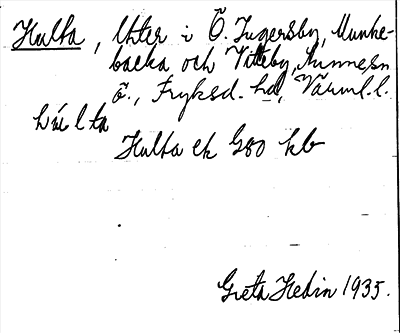 Hulta, Åter i Ö. Ingersby, Munke-
backa och Vitteby, Sunne sn
ö., Fryksd. hd, Värml. l.
hu̇lta
Hulta ek G80 kb
Greta Hedin 1935.